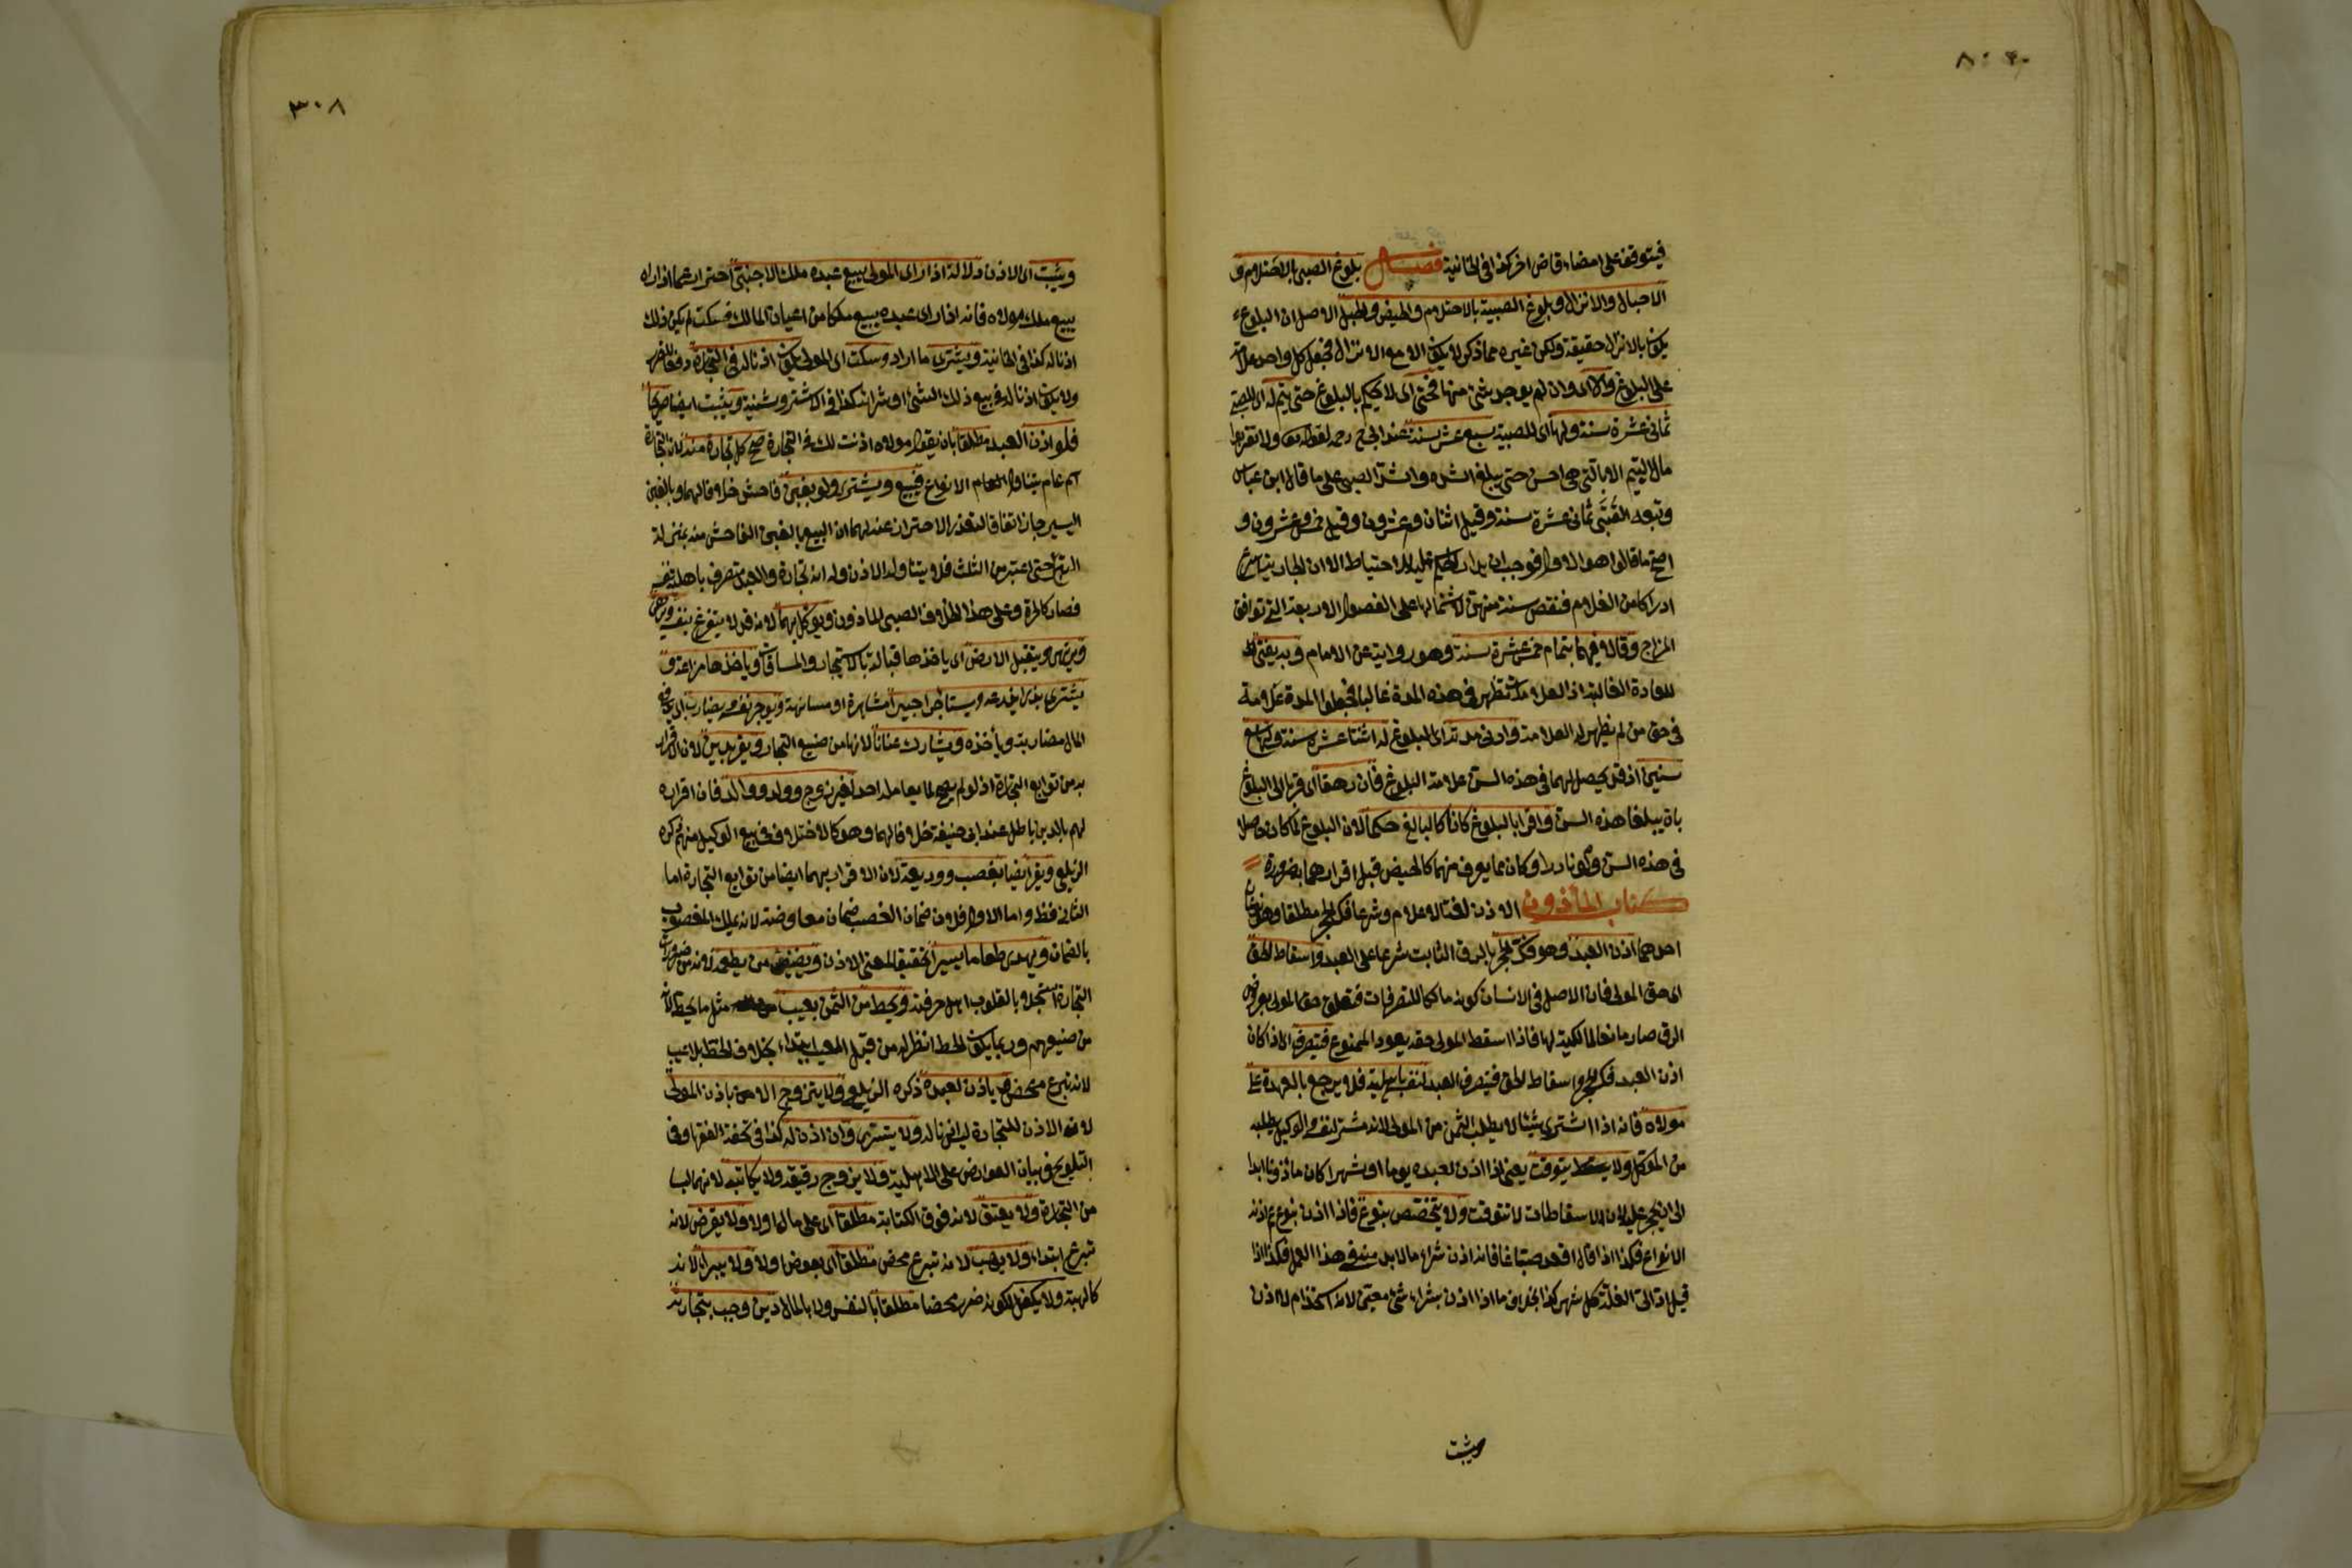 ٨٠٣
فيتوقف على امضاء قاض اخر كذا فى الخانية فصل بلوغ الصبى بالاحتلام و
الاحبال والانزال وبلوغ الصبية بالاحتلام والحيض والحبل الاصل ان البلوغ
يكون بالانزال حقيقة ولكن غيره مما ذكر لا يكون الا مع الانزال فجعل كل واحد علامة
على البلوغ والا اى وان لم يوجد شئ منها فحتى اى لا يحكم بالبلوغ حتى يتم له اى للصبى
ثمانى عشرة سنة ولها اى للصبية سبع عشر سنة عند ابى ح رحمه لقوله تعالى ولا تقربوا
مال اليتيم الا بالتى هى احسن حتى يبلغ اشده واشد الصبى على ما قال ابن عباس
وتبعه القتبى ثمانى عشرة سنة وقيل اثنان وعشرون وقيل خمس وعشرون و
اصح ما قالوا هو الاول فوجب ان يدار الحكم عليه للاحتياط الا ان الجارية اسرع
ادراكا من الغلام فنقص سنة منهن لاشتمالها على الفصول الاربعة التى توافق
المزاج وقالا فيهما بتمام خمس عشرة سنة وهو رواية عن الامام وبه يفتى
للعادة الغالبة اذ العلامات تظهر فى هذه المدة غالبا فجعلوا المدة علامة
فى حق من لم يظهر له العلامة وادنى مدته اى البلوغ له اثنتا عشرة سنة ولها تسع
سنين اذ قد يحصل لهما فى هذه السن علامة البلوغ فان رهقا اى قربا الى البلوغ
بان يبلغا هذه السن واقرا بالبلوغ كانا كالبالغ حكما لان البلوغ لما كان حاصلا
فى هذه السن ولو نادرا وكان مما يعرف منهما كالحيض قبل اقرارهما به ضرورة
كتاب المأذون الاذن لغة الاعلام وشرعا فك الحجر مطلقا وهو نوعان
احدهما اذن العبد وهو فك الحجر بالرق الثابت شرعا على العبد واسقاط الحق
اى حق المولى فان الاصل فى الانسان كونه مالكا للتصرفات فتعلق حق المولى بعروض
الرق صار مانعا لمالكيته لها فاذا اسقط المولى حقه يعود الممنوع فيتصرف اى اذا كان
اذن العبد فك الحجر واسقاط الحق فيتصرف العبد لنفسه باهليته فلا يرجع بالعهدة على
مولاه فانه اذا اشترى شيئا لا يطلب الثمن من المولى لانه مشتر لنفسه والوكيل يطلبه
من الموكل ولا يتوقت يعنى اذا اذن لعبده يوما او شهرا كان مأذونا ابدا
الى ان يحجر عليه لان الاسقاطات لا تتوقت ولا يتخصص بنوع فاذا اذن بنوع عم اذنه
الانواع فكذا اذا قال اقعد صباغا فانه اذن بشراء ما لا بد منه فى هذا العمل فكذا اذا
قيل اد الى الغلة كل شهر كذا بخلاف ما اذا اذن بشراء شئ معين لانه استخدام لا اذن
ويثبت
٣٠٨
ويثبت اى الاذن دلالة اذا راى المولى يبيع عبده ملك الاجنبى احتراز عما اذا راه
يبيع ملك مولاه فانه اذا راى عبده يبيع ملكا من اعيان المالك فسكت لم يكن ذلك
اذنا له كذا فى الخانية ويشترى ما اراد وسكت اى المولى يكون اذنا له فى التجارة دفعا للضرر
ولا يكون اذنا له فى بيع ذلك الشئ او شرائه كذا فى الاشتروشنية ويثبت ايضا صريحا
فلو اذن العبد مطلقا بان يقول مولاه اذنت لك فى التجارة صح كل تجارة منه لان التجارة
اسم عام يتناول العام الانواع فيبيع ويشترى ولو بغبن فاحش خلافا لهما وبالغبن
اليسير جاز اتفاقا لتعذر الاحتراز عنه لهما ان البيع بالغبن الفاحش منه بمنزلة
التبرع حتى اعتبر من الثلث فلا يتناوله الاذن وله انه تجارة والعبد متصرف باهلية نفسه
فصار كالحرة وعلى هذا الخلاف الصبى المأذون ويوكل بهما لانه قد لا يتفرغ بنفسه ويرهن
ويرتهن ويتقبل الارض اى يأخذها قبالة بالاستيجار والمساقات ويأخذها مزارعة و
يشترى بذرا يزرعه ويستأجر اجيرا مشاهرة او مسانهة ويوجر نفسه ويضارب اى يدفع
المال مضاربة ويأخذه ويشارك عنانا لانها من صنيع التجار ويقر بدين لان الاقرار
به من توابع التجارة اذ لو لم يصح لما يعامله احد لغير زوج وولد ووالد فان اقراره
لهم بالدين باطل عند ابى حنيفة خلافا لهما وهو كالاختلاف فى بيع الوكيل منهم ذكره
الزيلعى ويقر ايضا بغصب ووديعة لان الاقرار بهما ايضا من توابع التجارة اما
الثانى فظ واما الاول فلان ضمان الغصب ضمان معاوضة لانه يملك المغصوب
بالضمان ويهدى طعاما يسيرا تحقيقا لمعنى الاذن ويضيف من يطعمه لانه من ضرورات
التجارة استجلابا لقلوب اهل حرفته ويحط من الثمن بعيب مثل ما يحط لانه
من صنيعهم وربما يكون الحط انظر له من قبول المعيب ابتداء بخلاف الحط بلا عيب
لانه تبرع محض ويأذن لعبده ذكره الزيلعى ولا يتزوج الا باذن المولى
لانه الاذن للتجارة ليس هذا له ولا يتسرى وان اذن له كذا فى تحفة الفقها وفى
التلويح فى بيان العوارض على الاهلية ولا يزوج رقيقه ولا يكاتبه لانهما ليسا
من التجارة ولا يعتق لانه فوق الكتابة مطلقا اى على مال اولا ولا يقرض لانه
تبرع ابتداء ولا يهب لانه تبرع محض مطلقا اى بعوض اولا ولا يبرا لانه
كالهبة ولا يكفل لكونه ضررا محضا مطلقا بالنفس ولا بالمال دين وجب بتجارته